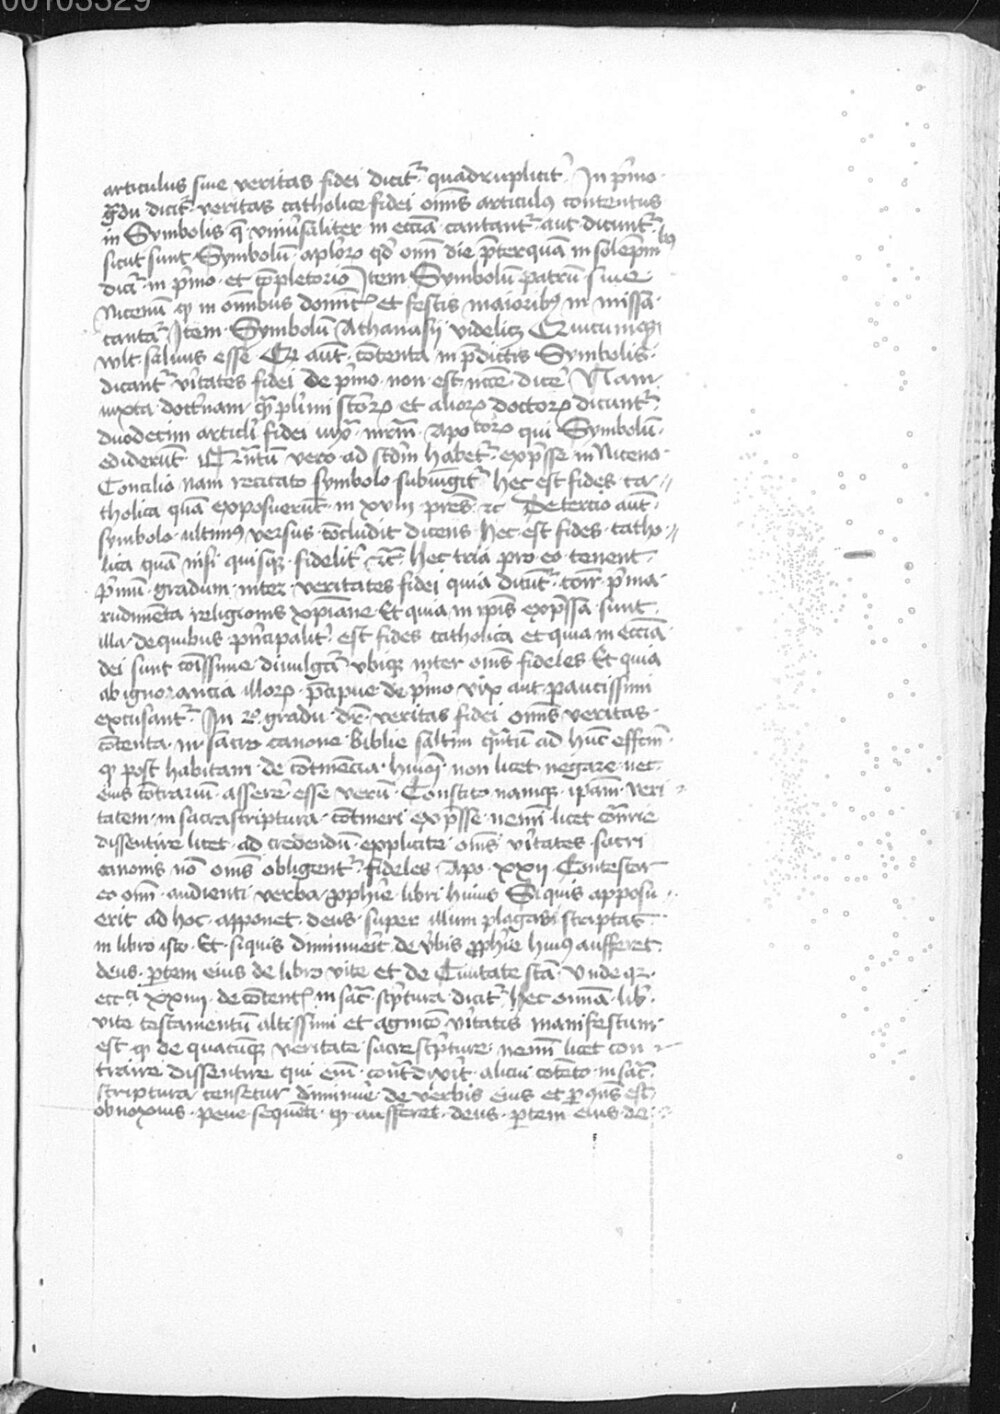 00103329
articulus siue veritas fidei dicit᷑ quadruplicit᷑ In p᷑mo
g᷑du dicit᷑ veritas catholice fidei om̄s articulus contentus
in Symbolis q̄ vniu᷑saliter in eccīa cantant᷑ aut dicunt᷑
sicut sunt Symbolū apl̄oꝝ qd̄ om̄i die p̄terquā in solēpnibꝰ
dicit᷑ in p᷑mo et cōpletorio Item Symbolū patrū siue
Nicenū qͥ in omībus domīc᷑ et festis maioribꝰ in missa
cantat᷑ Item Symbolū Athanasij videlicꝫ Quicumqꝫ
vult saluus esse Qꝫ aut̄ cōtenta in p̄dictis Symbolis
dicant᷑ v᷑itates fidei De p᷑mo non est ncc̄e dice᷑ Nam
iuxta doct᷑nam q᷑ plimi sc̄toꝝ et alioꝝ doctoꝝ dicunt᷑
duodecim articl̄i fidei iux᷑ nr̄m apostoꝝ qui Symbolū
ediderūt vero ad scd̄m habet᷑ exp᷑sse in Niceno
Concilio nam recitato symbolo subiūgit᷑ hec est fides ca-
tholica quā exposuerūt in xviij pres̄ ꝛc De tercio aut̄
symbolo vltimꝰ versus cōcludit dicens hec est fides catho-
lica quā nisi quisqꝫ fidelit᷑ ꝛc̄ hec tria pro eo tenent
p᷑mū gradum inter veritates fidei quia dicūt᷑ p᷑ma
rudimēta religionis xp̄iane Et quia in ip̄is exp᷑ssa sunt
illa de quibus p᷑ncipalit᷑ est fides catholica et quia in eccīa
dei sunt cōissime diuulgat᷑ vbiqꝫ inter om̄s fideles Et quia
ab ignorancia illoꝝ p᷑cipue de p᷑mo vix aut paucissimi
excusant᷑ In 2º gradu dr̄ veritas fidei omīs veritas
cōtenta in sacro canone biblie saltim q᷑ntū ad hūc effcm̄
qͥ post habitam de cōtinēcia huiꝰ non licet negare nec
eius cōtrariū assere᷑ esse verū Constito namqꝫ ip̄am veri
tatem in sacra scriptura cōtineri exp᷑sse nemī licet cōt᷑rie
dissentire licet ad credendū explicite om̄s v᷑itates sacri
canonis nō om̄s obligent᷑ fideles Apo xxij Contestor
eo om̄i audienti verba ꝓphīe libri huius Si quis apposu
erit ad hoc apponet deus super illum plagas scriptas
in libro isto Et si quis diminuerit de v᷑bis ꝓphīe huiꝰ aufferet
deus ꝑtem eius de libro vite et de Ciuitate sctā Vnde
ecc̄i xxiiij de cōtent᷑ in sac᷑ sc᷑ptura dicit᷑ hec omīa lib᷑
vite testamentū altissimi et agnicō v᷑itatis manifestum
est qͥ de quacūqꝫ veritate sacre sc᷑pture nemī licet con
traire dissentire qui em̄ alicui cōtēto in sac᷑
scriptura censetur diminue᷑ de verbis eius et ꝑ q̄ns est
obnoxius pene sequēti qͥ aufferet deus ꝑtem eius de